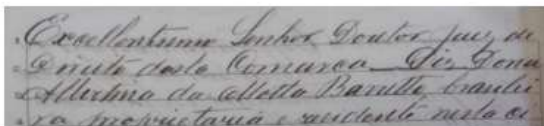 Excellentissimo Senhor Doutor Juiz de
Direito desta Comarca Diz Dona
da Motta Barutto, brasilei
ra proprietaria e residente nesta ci